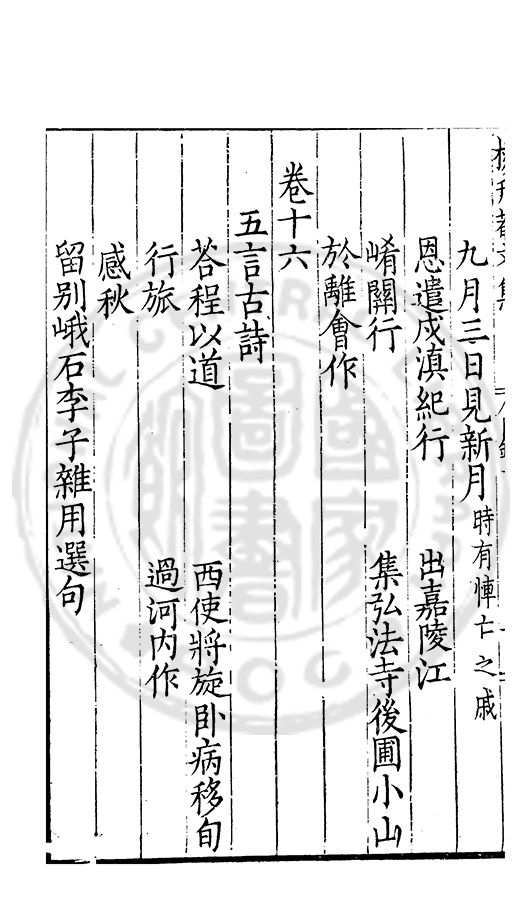 九月三日見新月時有悼亡之戚
恩遣戍滇紀行　出嘉陵江
崤關行　集弘法寺後圃小山
於離會作
卷十六
五言古詩
荅程以道　西使將旋卧病移旬
行旅　過河內作
感秋
留別峨石李子雜用選句